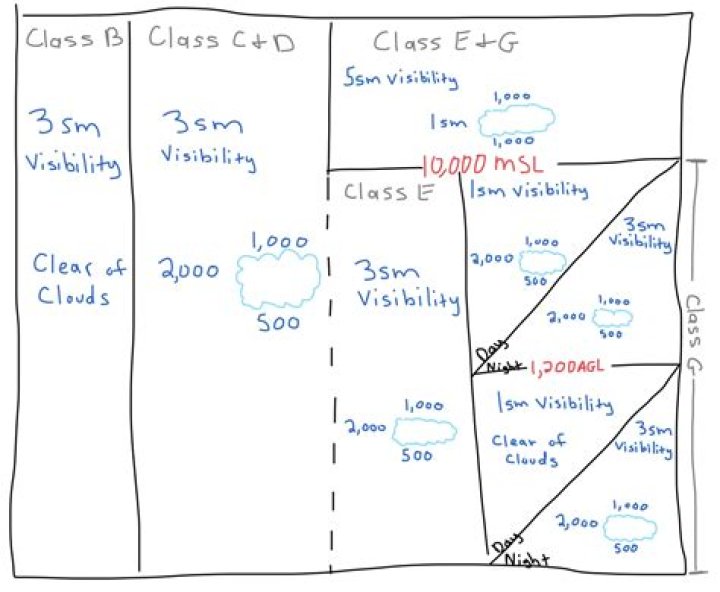 Class B
3 sm
Visibility
Clear of
Clouds
Class C+D
3 sm
Visibility
1,000
2,000
500
Class E+G
5sm Visibility
1,000
1sm
1,000
10,000 MSL
Class E
3sm
Visibility
1,000
2,000
500
1sm Visibility
1,000
2,000
500
3sm
Visibility
1,000
2,000
500
Day
Night
1,200AGL
1sm Visibility
Clear of
Clouds
3sm
Visibility
1,000
2,000
500
Day
Night
Class G